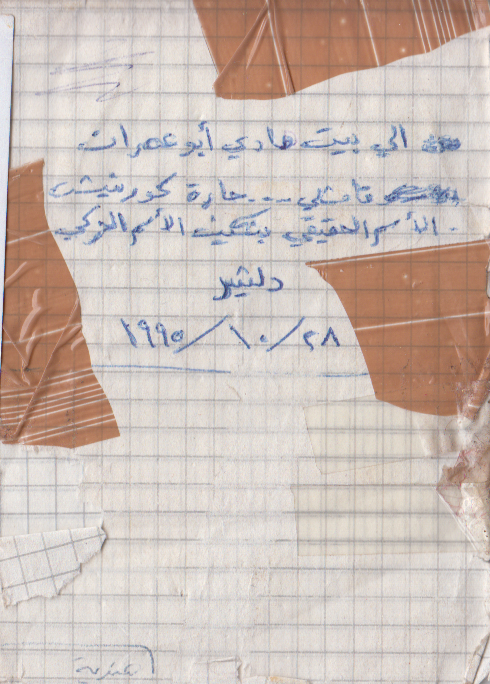 الي بيت هادي أبو عمران
قامشلي -- حارة كورنيش
- الأسم الحقيقي بنكين الأسم الحركي
دلشير
٢٨/١٠/١٩٩٥